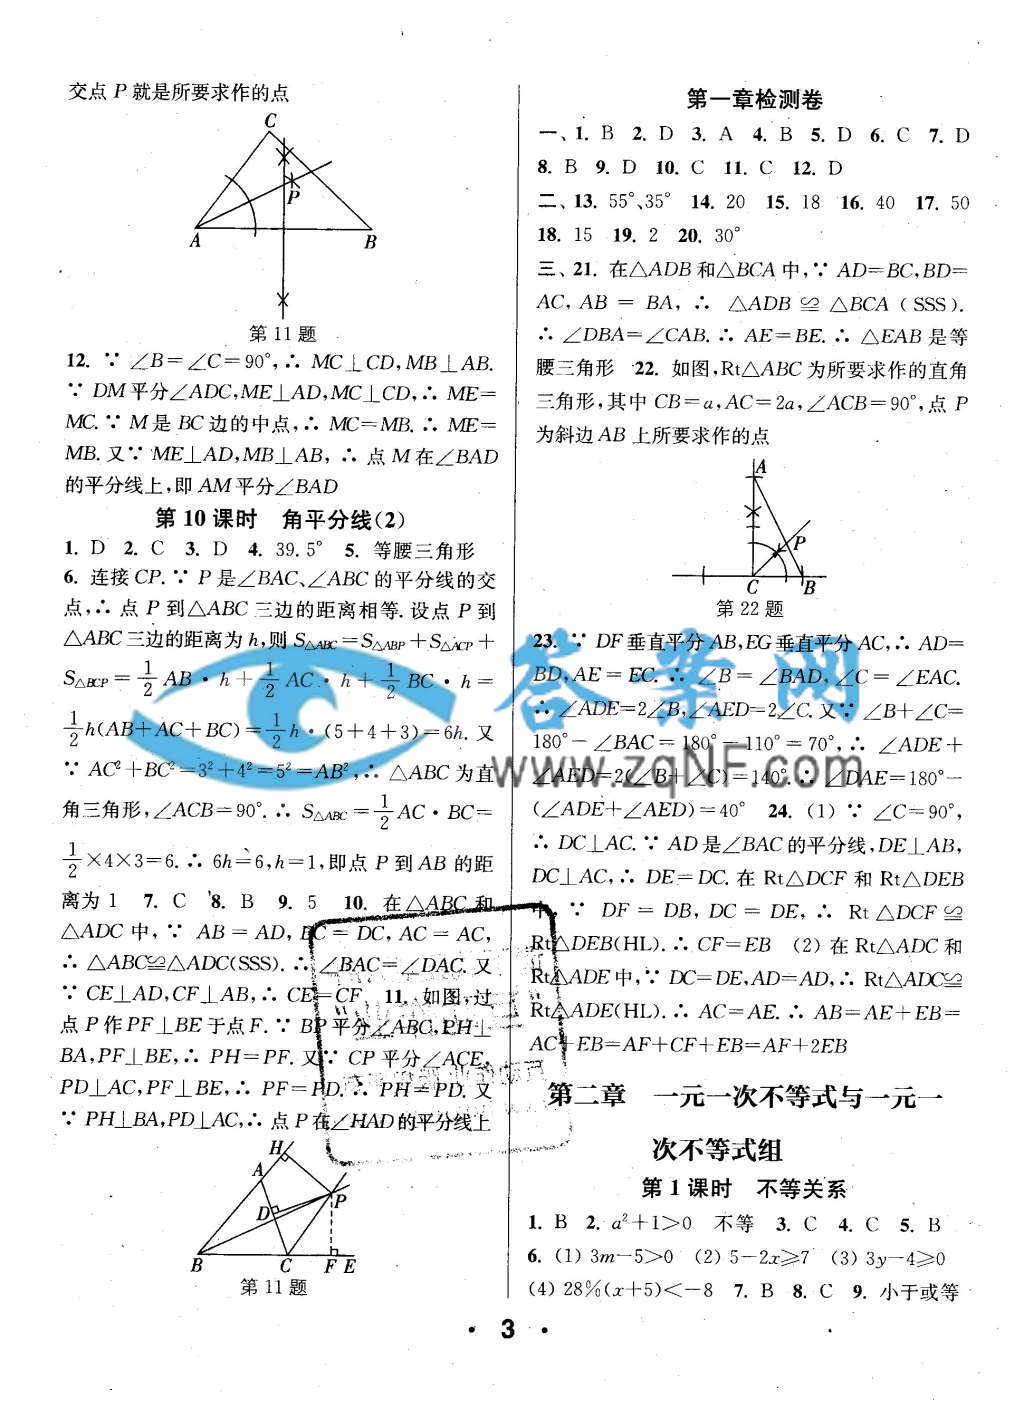 交点 P 就是所要求作的点
C
P
A
B
第 11 题
12. ∵ ∠B=∠C=90°,∴ MC⊥CD,MB⊥AB.
∵ DM平分∠ADC,ME⊥AD,MC⊥CD,∴ ME=
MC. ∵ M 是 BC 边的中点,∴ MC=MB. ∴ ME=
MB. 又∵ ME⊥AD,MB⊥AB, ∴ 点 M 在∠BAD
的平分线上,即 AM 平分∠BAD
第 10 课时 角平分线(2)
1. D 2. C 3. D 4. 39.5° 5. 等腰三角形
6. 连接 CP. ∵ P 是∠BAC、∠ABC 的平分线的交
点,∴ 点 P 到△ABC 三边的距离相等. 设点 P 到
△ABC 三边的距离为 h,则 S△ABC=S△ABP+S△ACP+
S△BCP=1/2 AB·h+1/2 AC·h+1/2 BC·h=
1/2 h(AB+AC+BC)=1/2 h·(5+4+3)=6h. 又
∵ AC²+BC²=3²+4²=5²=AB²,∴ △ABC 为直
角三角形,∠ACB=90°. ∴ S△ABC=1/2 AC·BC=
1/2×4×3=6. ∴ 6h=6,h=1,即点 P 到 AB 的距
离为 1 7. C 8. B 9. 5 10. 在△ABC 和
△ADC 中,∵ AB=AD,BC=DC,AC=AC,
∴ △ABC≌△ADC(SSS). ∴ ∠BAC=∠DAC. 又
∵ CE⊥AD,CF⊥AB,∴ CE=CF 11. 如图,过
点 P 作 PF⊥BE 于点 F. ∵ BP 平分∠ABC,PH⊥
BA,PF⊥BE,∴ PH=PF. 又∵ CP 平分∠ACE,
PD⊥AC,PF⊥BE,∴ PF=PD. ∴ PH=PD. 又
∵ PH⊥BA,PD⊥AC,∴ 点 P 在∠HAD 的平分线上
H
A
P
D
B
C
F
E
第 11 题
第一章检测卷
一、1. B 2. D 3. A 4. B 5. D 6. C 7. D
8. B 9. D 10. C 11. C 12. D
二、13. 55°、35° 14. 20 15. 18 16. 40 17. 50
18. 15 19. 2 20. 30°
三、21. 在△ADB 和△BCA 中,∵ AD=BC,BD=
AC, AB = BA, ∴ △ADB ≌ △BCA (SSS).
∴ ∠DBA=∠CAB. ∴ AE=BE. ∴ △EAB 是等
腰三角形 22. 如图,Rt△ABC 为所要求作的直角
三角形,其中 CB=a,AC=2a,∠ACB=90°,点 P
为斜边 AB 上所要求作的点
A
P
C
B
第 22 题
23. ∵ DF 垂直平分 AB,EG 垂直平分 AC,∴ AD=
BD,AE=EC. ∴ ∠B=∠BAD,∠C=∠EAC.
∴ ∠ADE=2∠B,∠AED=2∠C. 又∵ ∠B+∠C=
180°-∠BAC=180°-110°=70°,∴ ∠ADE+
∠AED=2(∠B+∠C)=140°. ∴ ∠DAE=180°-
(∠ADE+∠AED)=40° 24. (1) ∵ ∠C=90°,
∴ DC⊥AC. ∵ AD 是∠BAC 的平分线,DE⊥AB,
DC⊥AC,∴ DE=DC. 在 Rt△DCF 和 Rt△DEB
中, ∵ DF = DB, DC = DE, ∴ Rt△DCF≌
Rt△DEB(HL). ∴ CF=EB (2) 在 Rt△ADC 和
Rt△ADE 中,∵ DC=DE,AD=AD,∴ Rt△ADC≌
Rt△ADE(HL). ∴ AC=AE. ∴ AB=AE+EB=
AC+EB=AF+CF+EB=AF+2EB
第二章 一元一次不等式与一元一
次不等式组
第 1 课时 不等关系
1. B 2. a²+1>0 不等 3. C 4. C 5. B
6. (1) 3m-5>0 (2) 5-2x≥7 (3) 3y-4≥0
(4) 28%(x+5)<-8 7. B 8. C 9. 小于或等
答案网
www.zqNF.com
· 3 ·